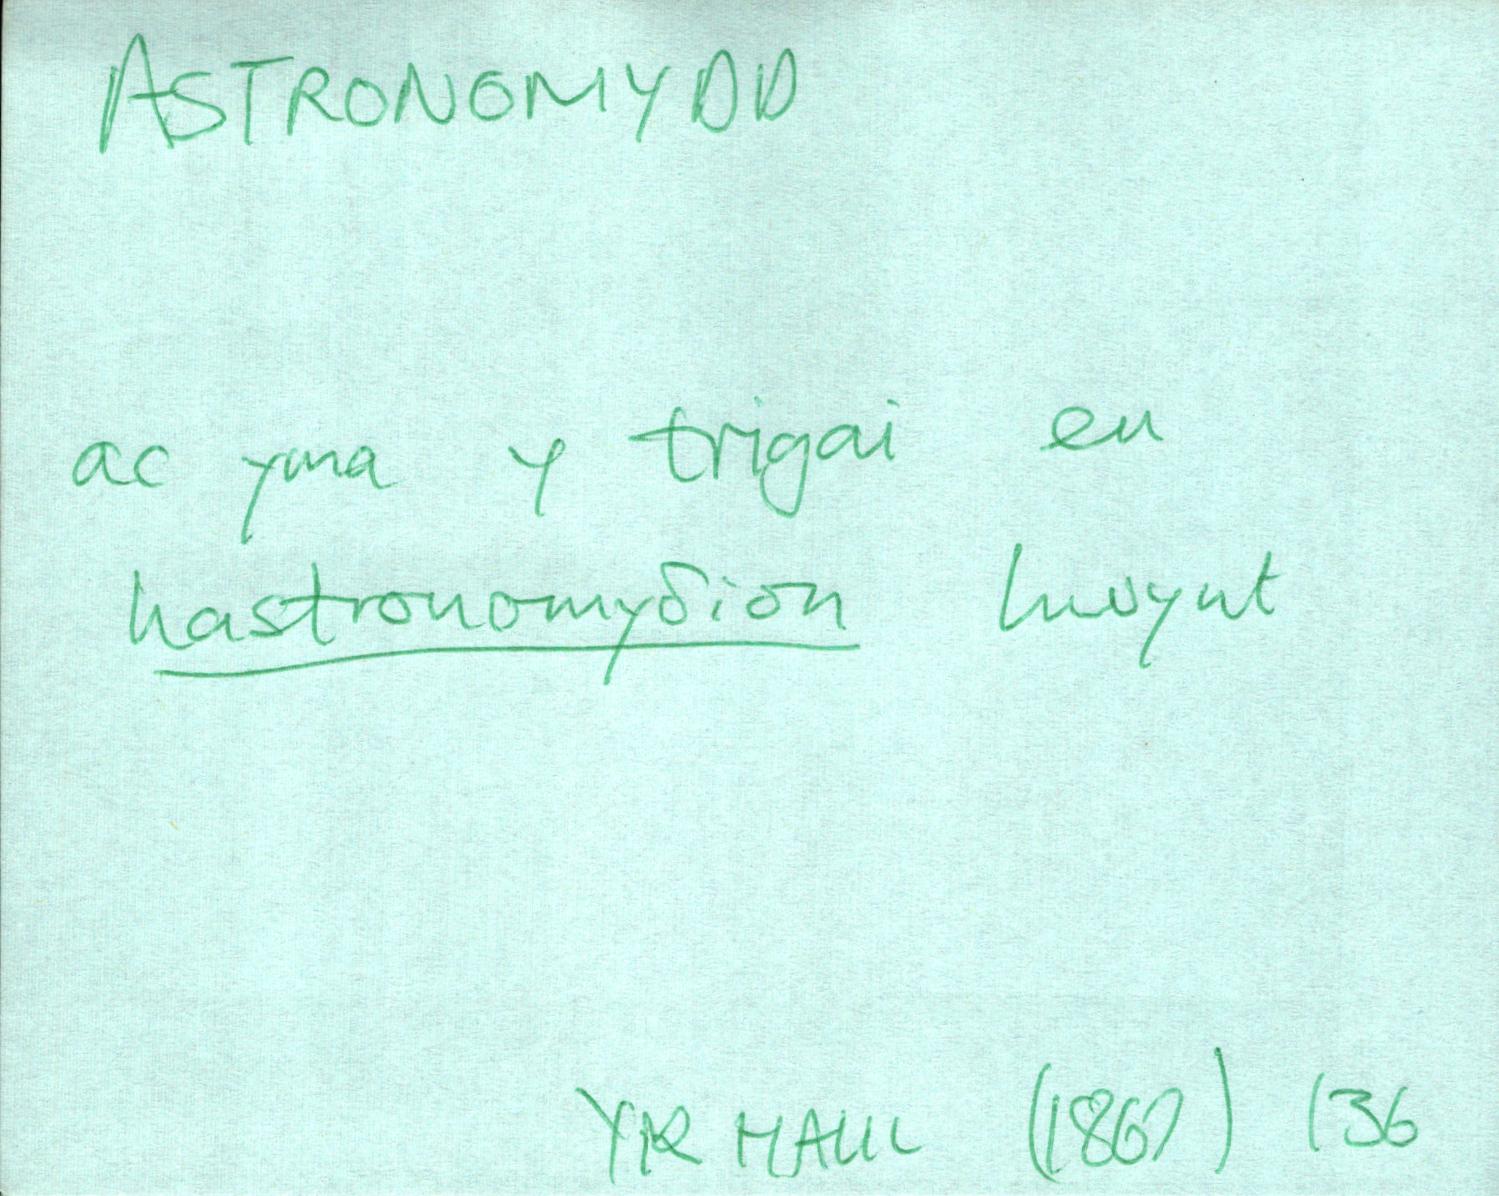 ASTRONOMYDD
ac yma y trigai eu
hastronomyδion hwynt
YR HAUL (1867) 136